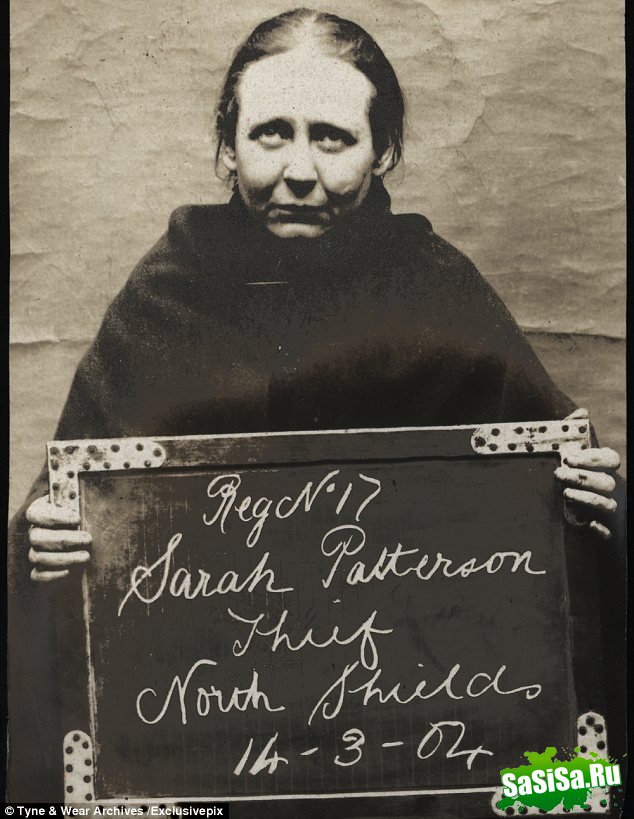 Reg No. 17
Sarah Patterson
Thief
North Shields
14-3-04
SaSiSa.Ru
© Tyne & Wear Archives /Exclusivepix